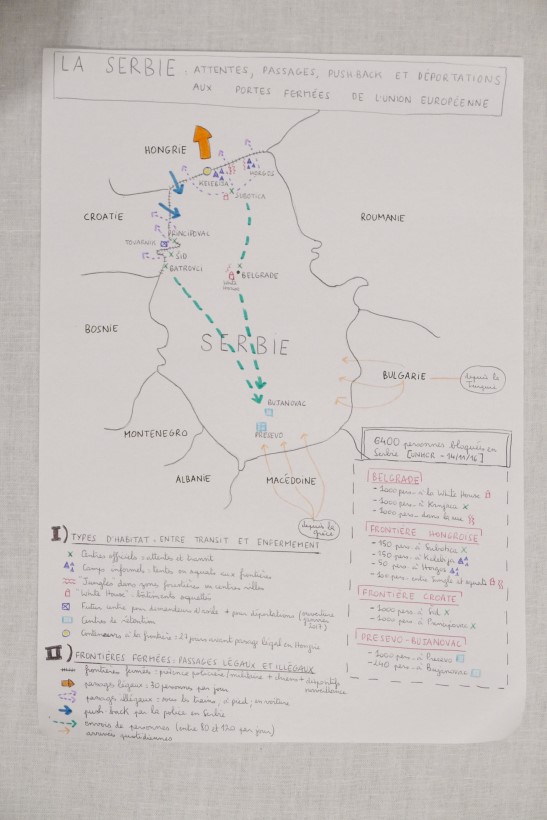 LA SERBIE : ATTENTES, PASSAGES, PUSHBACK ET DÉPORTATIONS
AUX PORTES FERMÉES DE L'UNION EUROPÉENNE
HONGRIE
KELEBIJA
HORGOS
SUBOTICA
CROATIE
ROUMANIE
PRINCIPOVAL
TOVARNIK
ŠID
BATROVCI
BELGRADE
White House
BOSNIE
SERBIE
BULGARIE
depuis la Turquie
BUJANOVAC
PRESEVO
MONTENEGRO
ALBANIE
MACÉDOINE
depuis la Grèce
6400 personnes bloquées en
Serbie [UNHCR - 14/11/16]
BELGRADE
- 1000 pers. à la White House
- 1000 pers. à Krnjaca
- 1000 pers. dans la rue
FRONTIÈRE HONGROISE
- 150 pers. à Subotica
- 150 pers. à Kelebija
- 50 pers. à Horgos
- 100 pers. entre Jungle et squats
FRONTIÈRE CROATE
- 1000 pers. à Sid
- 1000 pers. à Principovac
PRESEVO-BUJANOVAC
- 1000 pers. à Presevo
- 240 pers. à Bujanovac
I) TYPES D'HABITAT : ENTRE TRANSIT ET ENFERMEMENT
Centres officiels : attente et transit
Camps informels : tentes ou squats aux frontières
"Jungles" dans zones frontières ou centres villes
"White House" : bâtiments squattés
Futur centre pour demandeurs d'asile + pour déportations (ouverture janvier 2017)
Centres de rétention
Conteneurs à la frontière : 27 jours avant passage légal en Hongrie
II) FRONTIÈRES FERMÉES : PASSAGES LÉGAUX ET ILLÉGAUX
frontières fermées : présence policière/militaire + drones + dispositifs surveillance
passages légaux : 30 personnes par jour
passages illégaux : sous les trains, à pied, en voiture
push-back par la police en Serbie
envois de personnes (entre 80 et 120 par jour)
arrivées quotidiennes